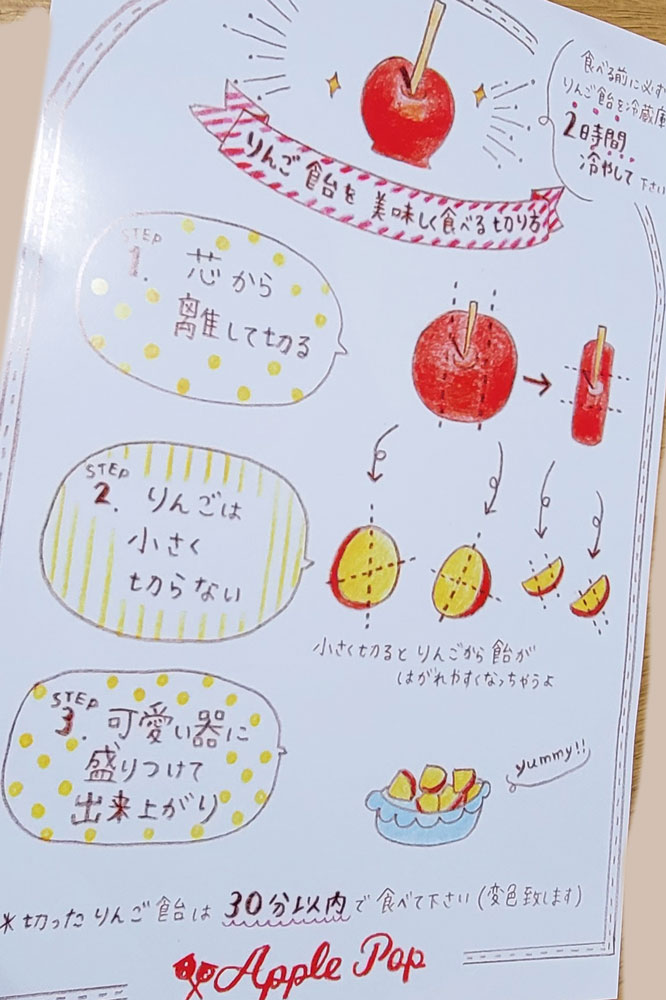 食べる前に必ず
りんご飴を冷蔵庫
2時間
冷やして下さい
りんご飴を美味しく食べる切り方
STEP
1. 芯から
離して切る
STEP
2. りんごは
小さく
切らない
小さく切るとりんごから飴が
はがれやすくなっちゃうよ
STEP
3. 可愛い器に
盛りつけて
出来上がり
yummy!!
*切ったりんご飴は30分以内で食べて下さい(変色致します)
Apple Pop